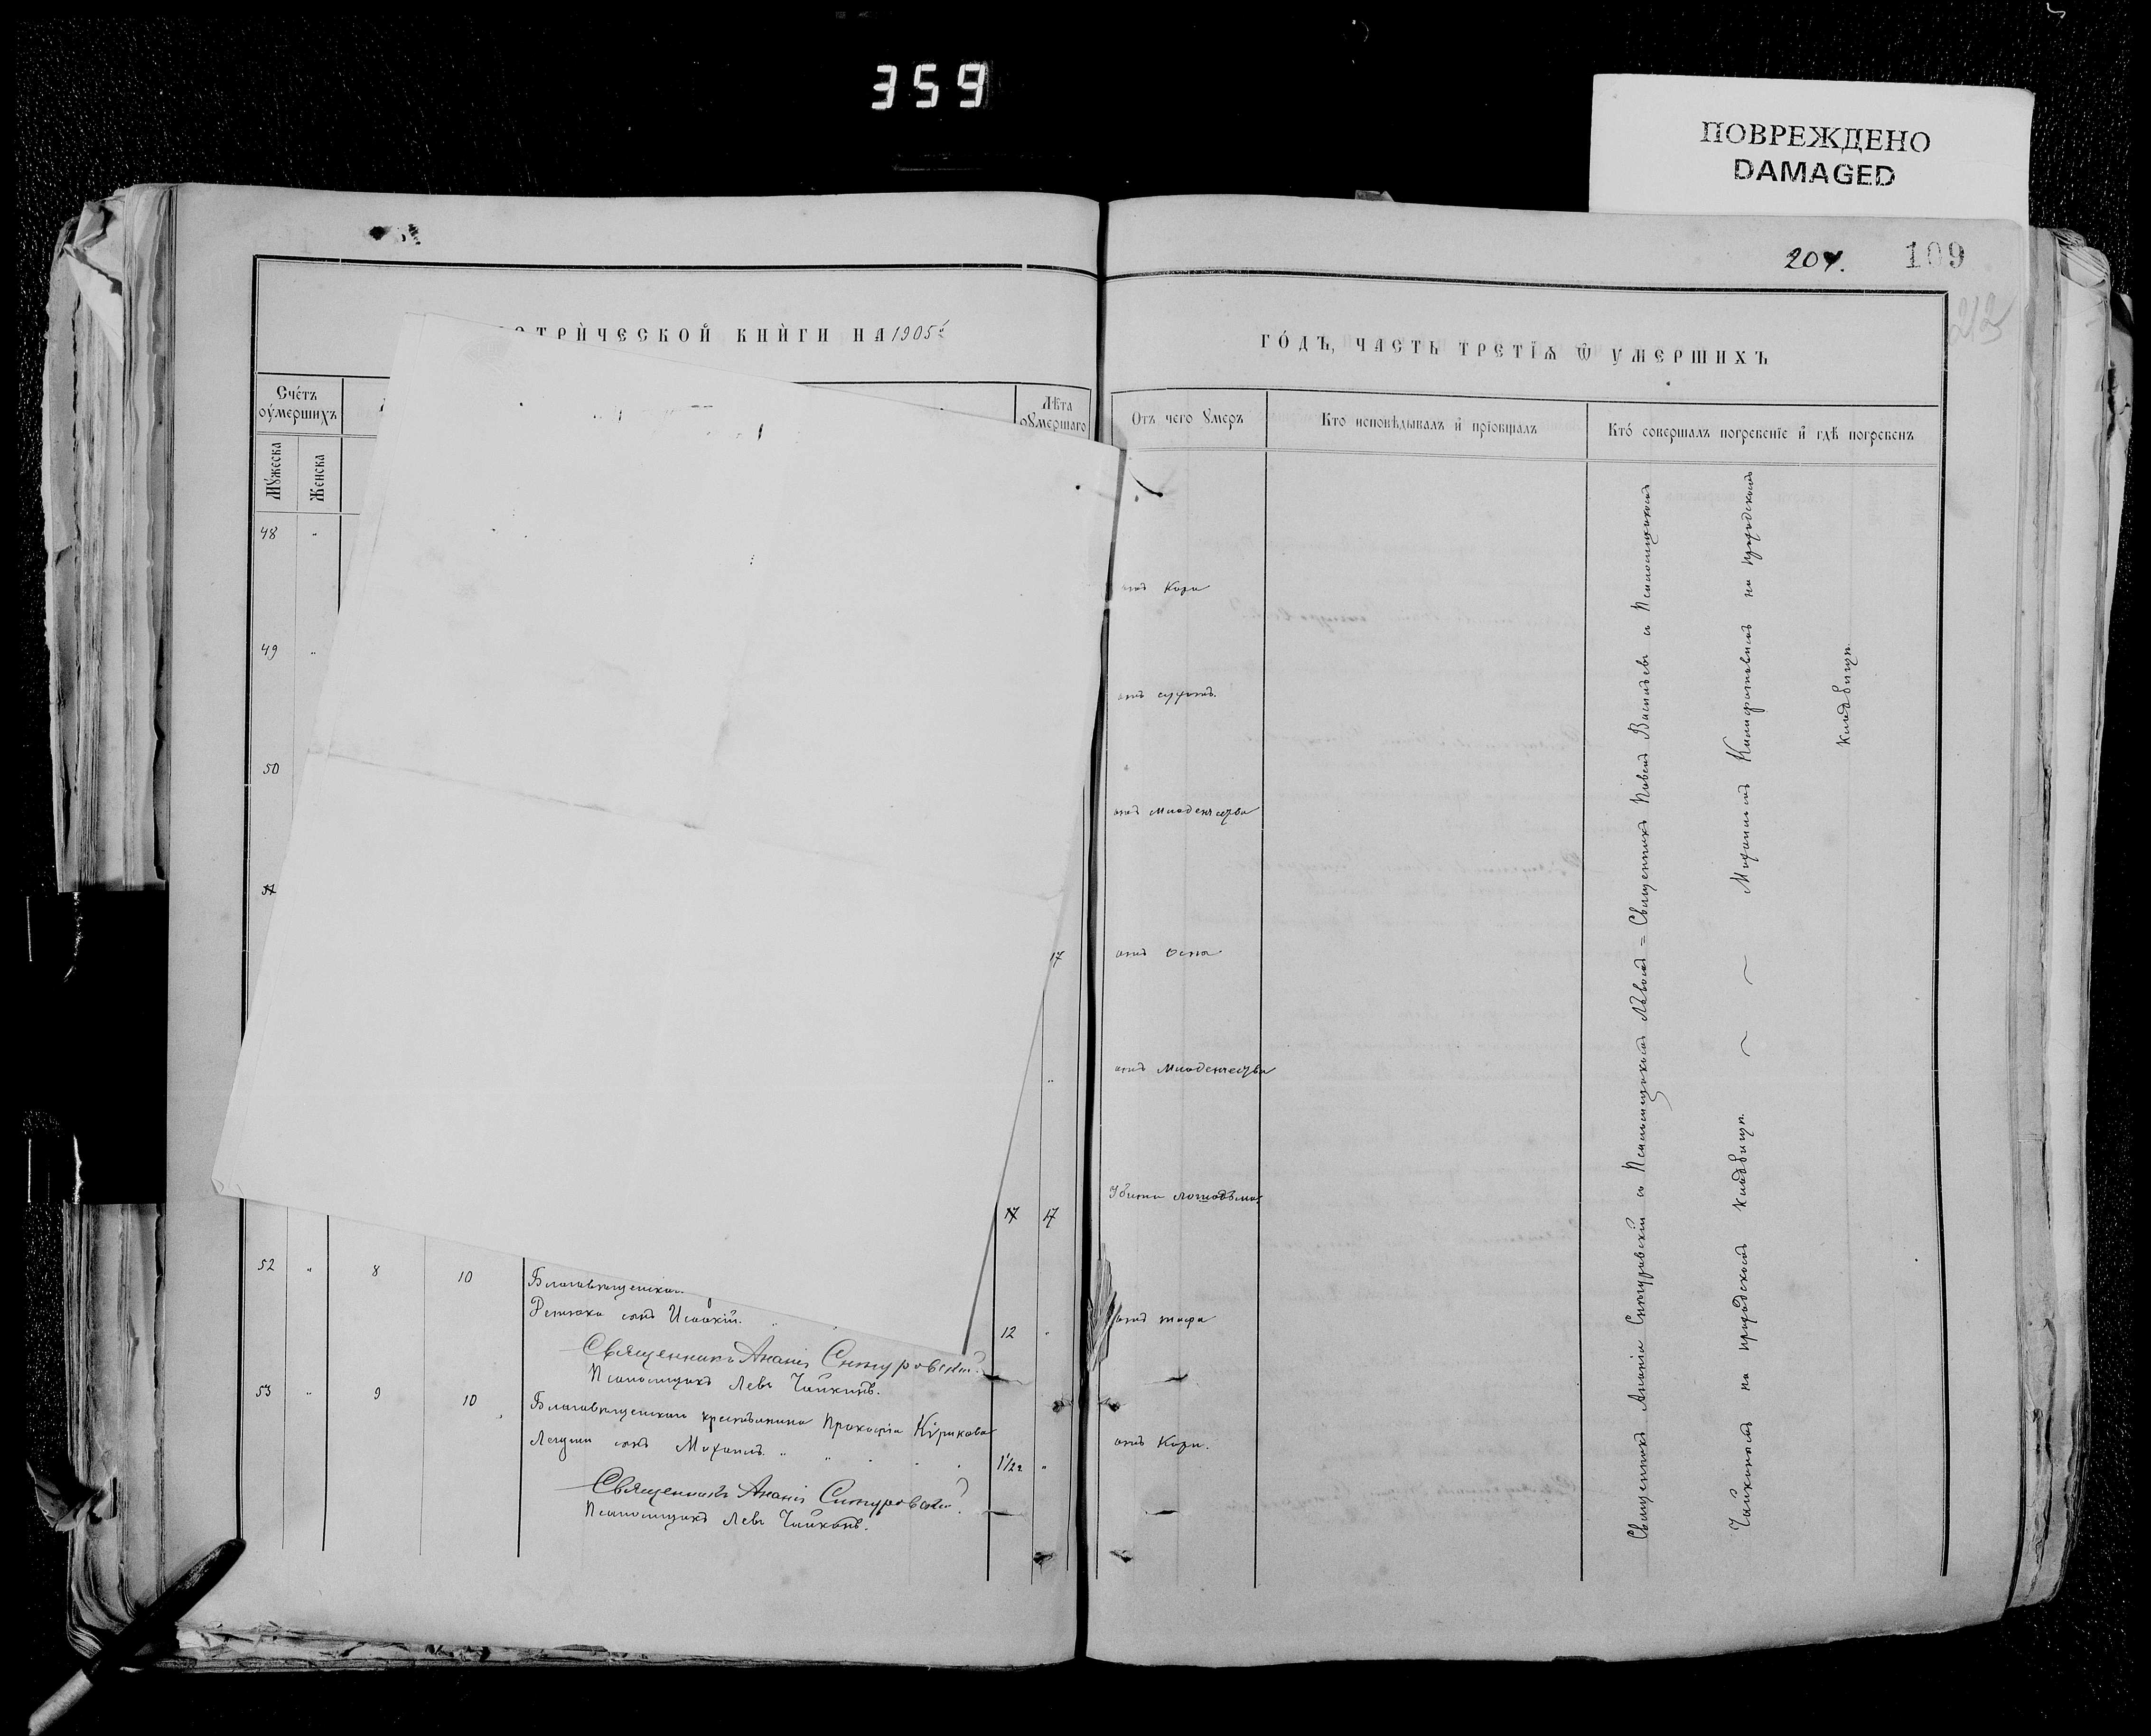 359
ПОВРЕЖДЕНО
DAMAGED
204. 109
212
ТРИЧЕСКОЙ КНИГИ НА 1905
ГОДЪ, ЧАСТЬ ТРЕТІЯ Ѿ УМЕРШИХЪ
Счетъ
оумершихъ
Мужеска
Женска
Лѣта
оумершаго
Отъ чего умеръ
Кто исповѣдывалъ и пріобщалъ
Кто совершалъ погребеніе и гдѣ погребенъ
48 "
отъ Кори
49 "
50
отъ младенчества
17
отъ оспы
"
отъ младенчества
17 17
Убитъ лошадьми
52 " 8 10
Благовѣщенскаго
сынъ Исаакій.
12 "
отъ тифа
Священникъ Ананія Снѣгуровскій
Псаломщикъ Левъ Чайкинъ.
53 " 9 10
Благовѣщенскаго крестьянина Прокофія Кирикова
сынъ Михаилъ
1 1/2 г. "
отъ Кори.
Священникъ Ананія Снѣгуровскій
Псаломщикъ Левъ Чайкинъ.
Священникъ Ананія Снѣгуровскій и Псаломщикомъ Львомъ = Священникъ Павелъ Васильевъ и Псаломщикомъ
Чайкинымъ на городскомъ кладбищѣ. Михаиломъ на городскомъ
кладбищѣ.